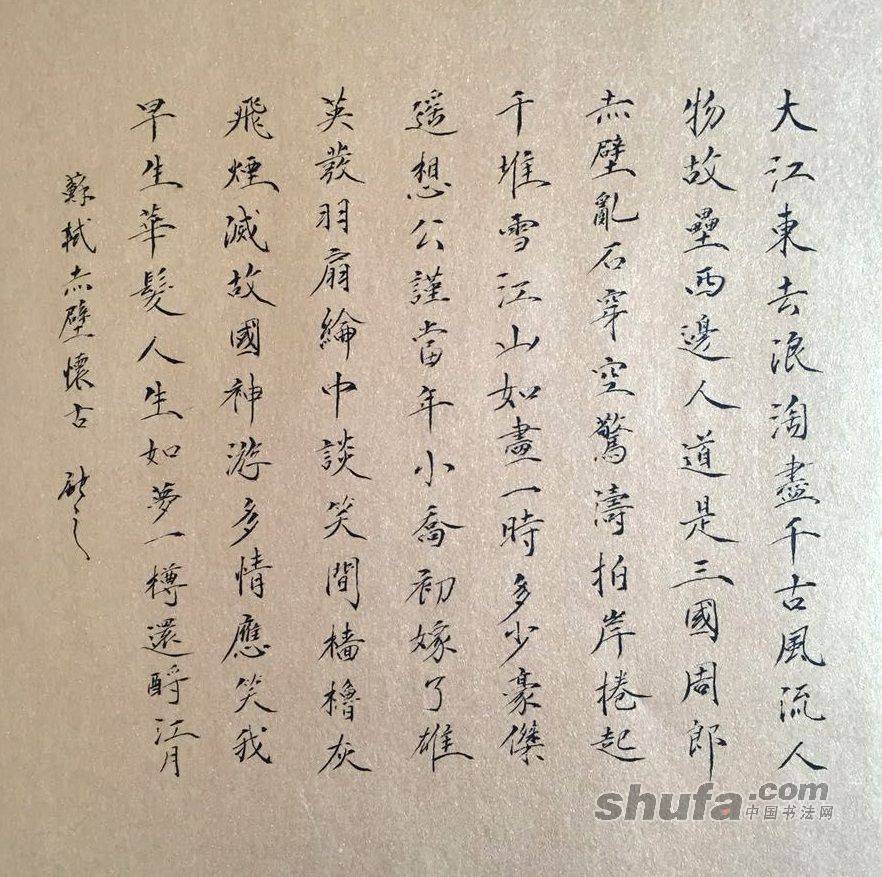 大江東去浪淘盡千古風流人
物故壘西邊人道是三國周郎
赤壁亂石穿空驚濤拍岸捲起
千堆雪江山如畫一時多少豪傑
遥想公謹當年小喬初嫁了雄
英發羽扇綸巾談笑間檣櫓灰
飛煙滅故國神游多情應笑我
早生華髮人生如夢一樽還酹江月
蘇軾赤壁懷古
shufa.com
中国书法网